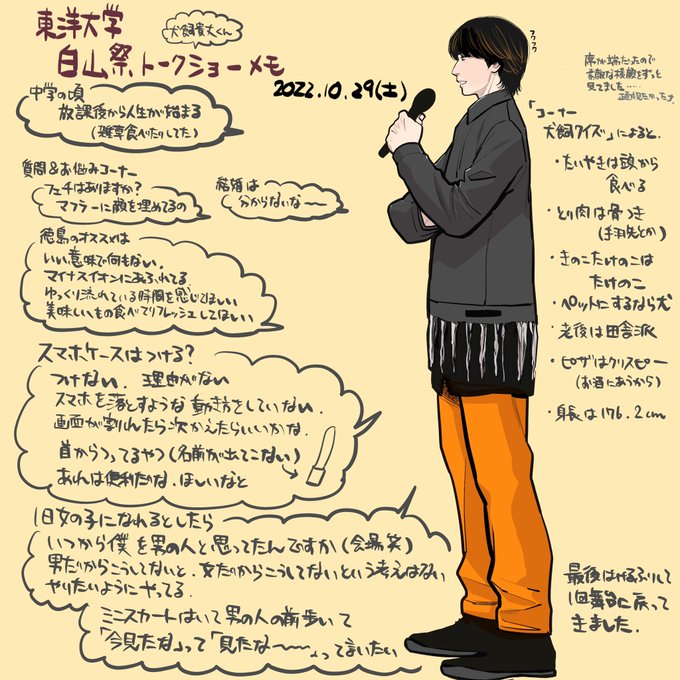 東洋大学
犬飼貴丈くん
白山祭トークショーメモ
2022.10.29(土)
中学の頃
放課後から人生が始まる
(雑草食べたりしてた)
質問&お悩みコーナー
フェチはありますか?
マフラーに顔を埋めてるの
結婚は
分からないな〜
徳島のオススメは
いい意味で何もない。
マイナスイオンにあふれてる。
ゆっくり流れている時間を感じてほしい
美味しいもの食べてリフレッシュしてほしい
スマホケースはつける?
つけない。理由がない
スマホを落とすような動き方をしていない。
画面が割れたら次かえたらいいかな。
首からつってるやつ(名前が出てこない)
あれは便利だな。ほしいなと
1日女の子になれるとしたら
いつから僕を男の人と思ってたんですか(会場笑)
男だからこうしてないと、女だからこうしてないという考えはない
やりたいようにやってる。
ミニスカートはいて男の人の前歩いて
「今見たな」って「見たな〜〜」って言いたい
フワフワ
席が端だったので
素敵な横顔をずっと
見てました……
「コーナー
犬飼クイズ」によると、
・たいやきは頭から
食べる
・とり肉は骨つき
(手羽先とか)
・きのこたけのこは
たけのこ
・ペットにするなら犬
・老後は田舎派
・ピザはクリスピー
(お酒にあうから)
・身長は176.2cm
最後はけるふりして
1回舞台に戻って
きました。